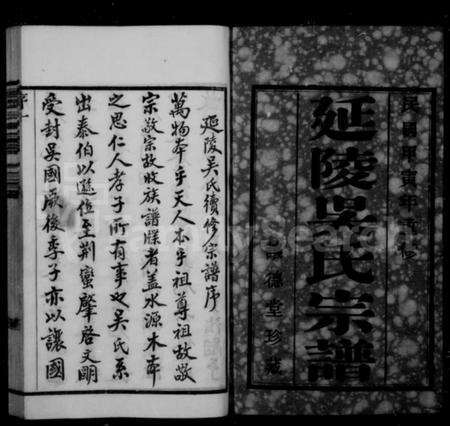 民國甲寅年續修
延陵吳氏宗譜
德堂珍藏
延陵吳氏續修宗譜序
萬物本乎天人本乎祖尊祖故敬
宗敬宗故收族譜牒者蓋水源木本
之思仁人孝子所有事也吳氏系
出泰伯以遜位至荆蠻肇啓文明
受封吳國厥後季子亦以讓國
序一
FamilySearch